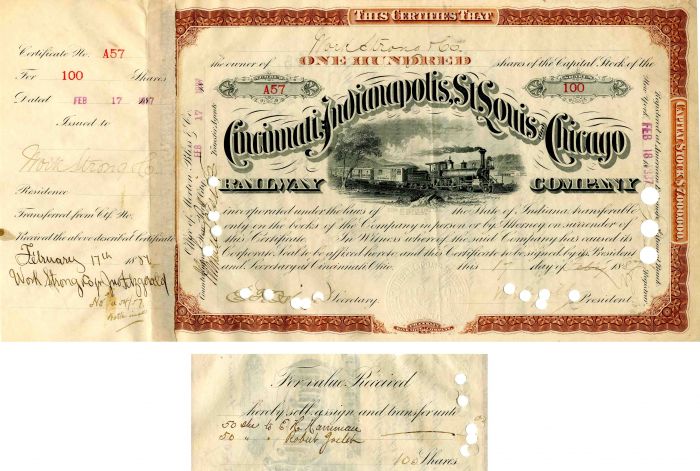 Certificate No. A57
For 100 Shares
Dated FEB 17 1887
Issued to
Work Strong & Co.
Residence
Transferred from Ctf. No.
Received the above described Certificate
February 17th 1887
Work Strong & Co
THIS CERTIFIES THAT
Work Strong & Co.
the owner of ONE HUNDRED shares of the Capital Stock of the
NUMBER
A57
SHARES
100
Cincinnati, Indianapolis, St. Louis and Chicago
RAILWAY COMPANY
incorporated under the laws of the State of Indiana, transferable
only on the books of the Company in person or by Attorney on surrender of
this Certificate. In Witness whereof the said Company has caused its
Corporate Seal to be affixed hereto and this Certificate to be signed by its President
and Secretary at Cincinnati Ohio this 17 day of
Secretary.
President
Office of Morton, Bliss & Co.
FEB 17
Transfer Agents
Registered
New York FEB 18 1887
Registrar
CAPITAL STOCK $7,000,000.
For value Received
hereby sell, assign and transfer unto
50 shs to E. H. Harriman
50 " " Robert
100 Shares